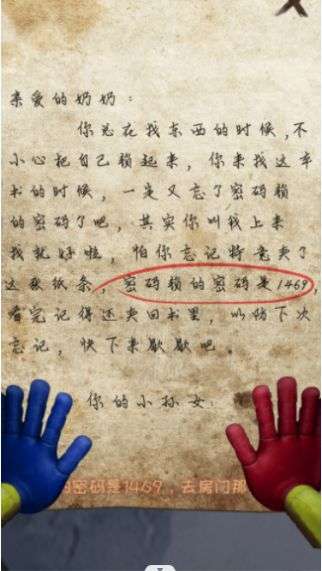 亲爱的奶奶：
你总在找东西的时候，不
小心把自己锁起来，你来找这本
书的时候，一定又忘了密码锁
的密码了吧，其实你叫我上来
我就好啦，怕你忘记特意夹了
这张纸条，密码锁的密码是1469，
看完记得还夹回书里，以妨下次
忘记，快下来歇歇吧。
你的小孙女：
的密码是1469，去房门那